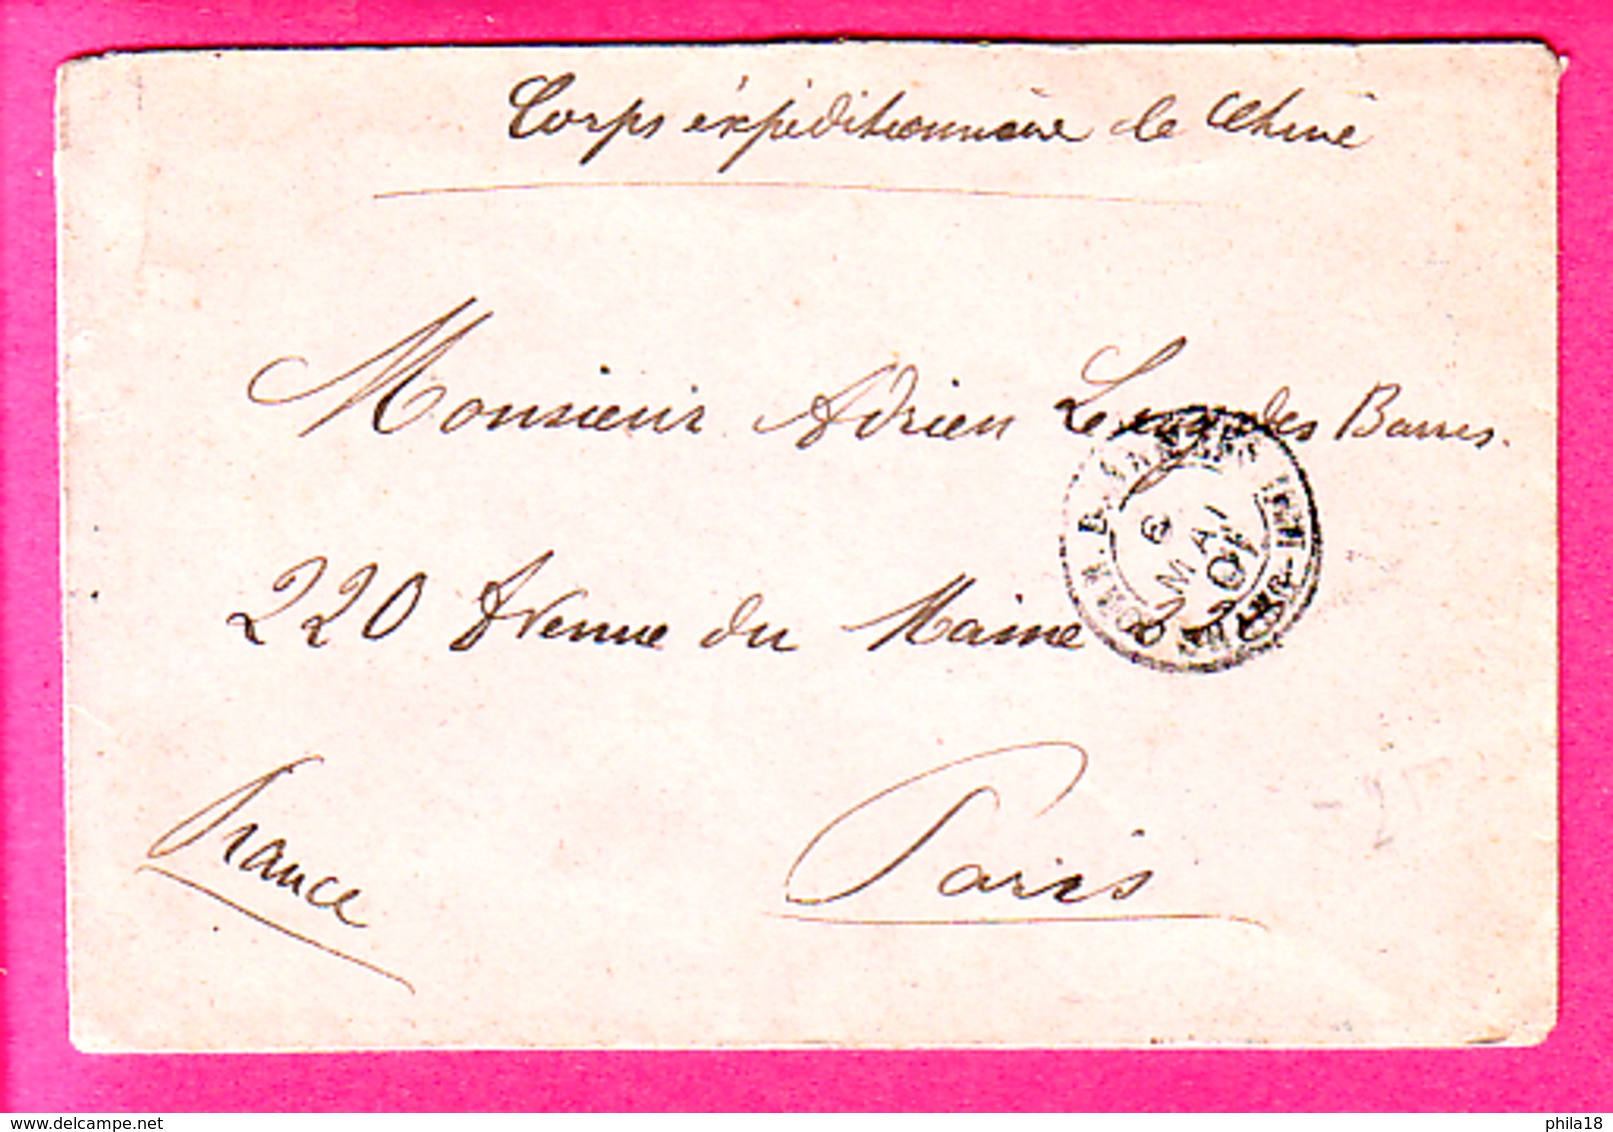 Corps éxpéditionnaire de Chine
Monsieur Adrien des Barres.
220 Avenue du Maine 220
France Paris
6
MAI
01
phila18